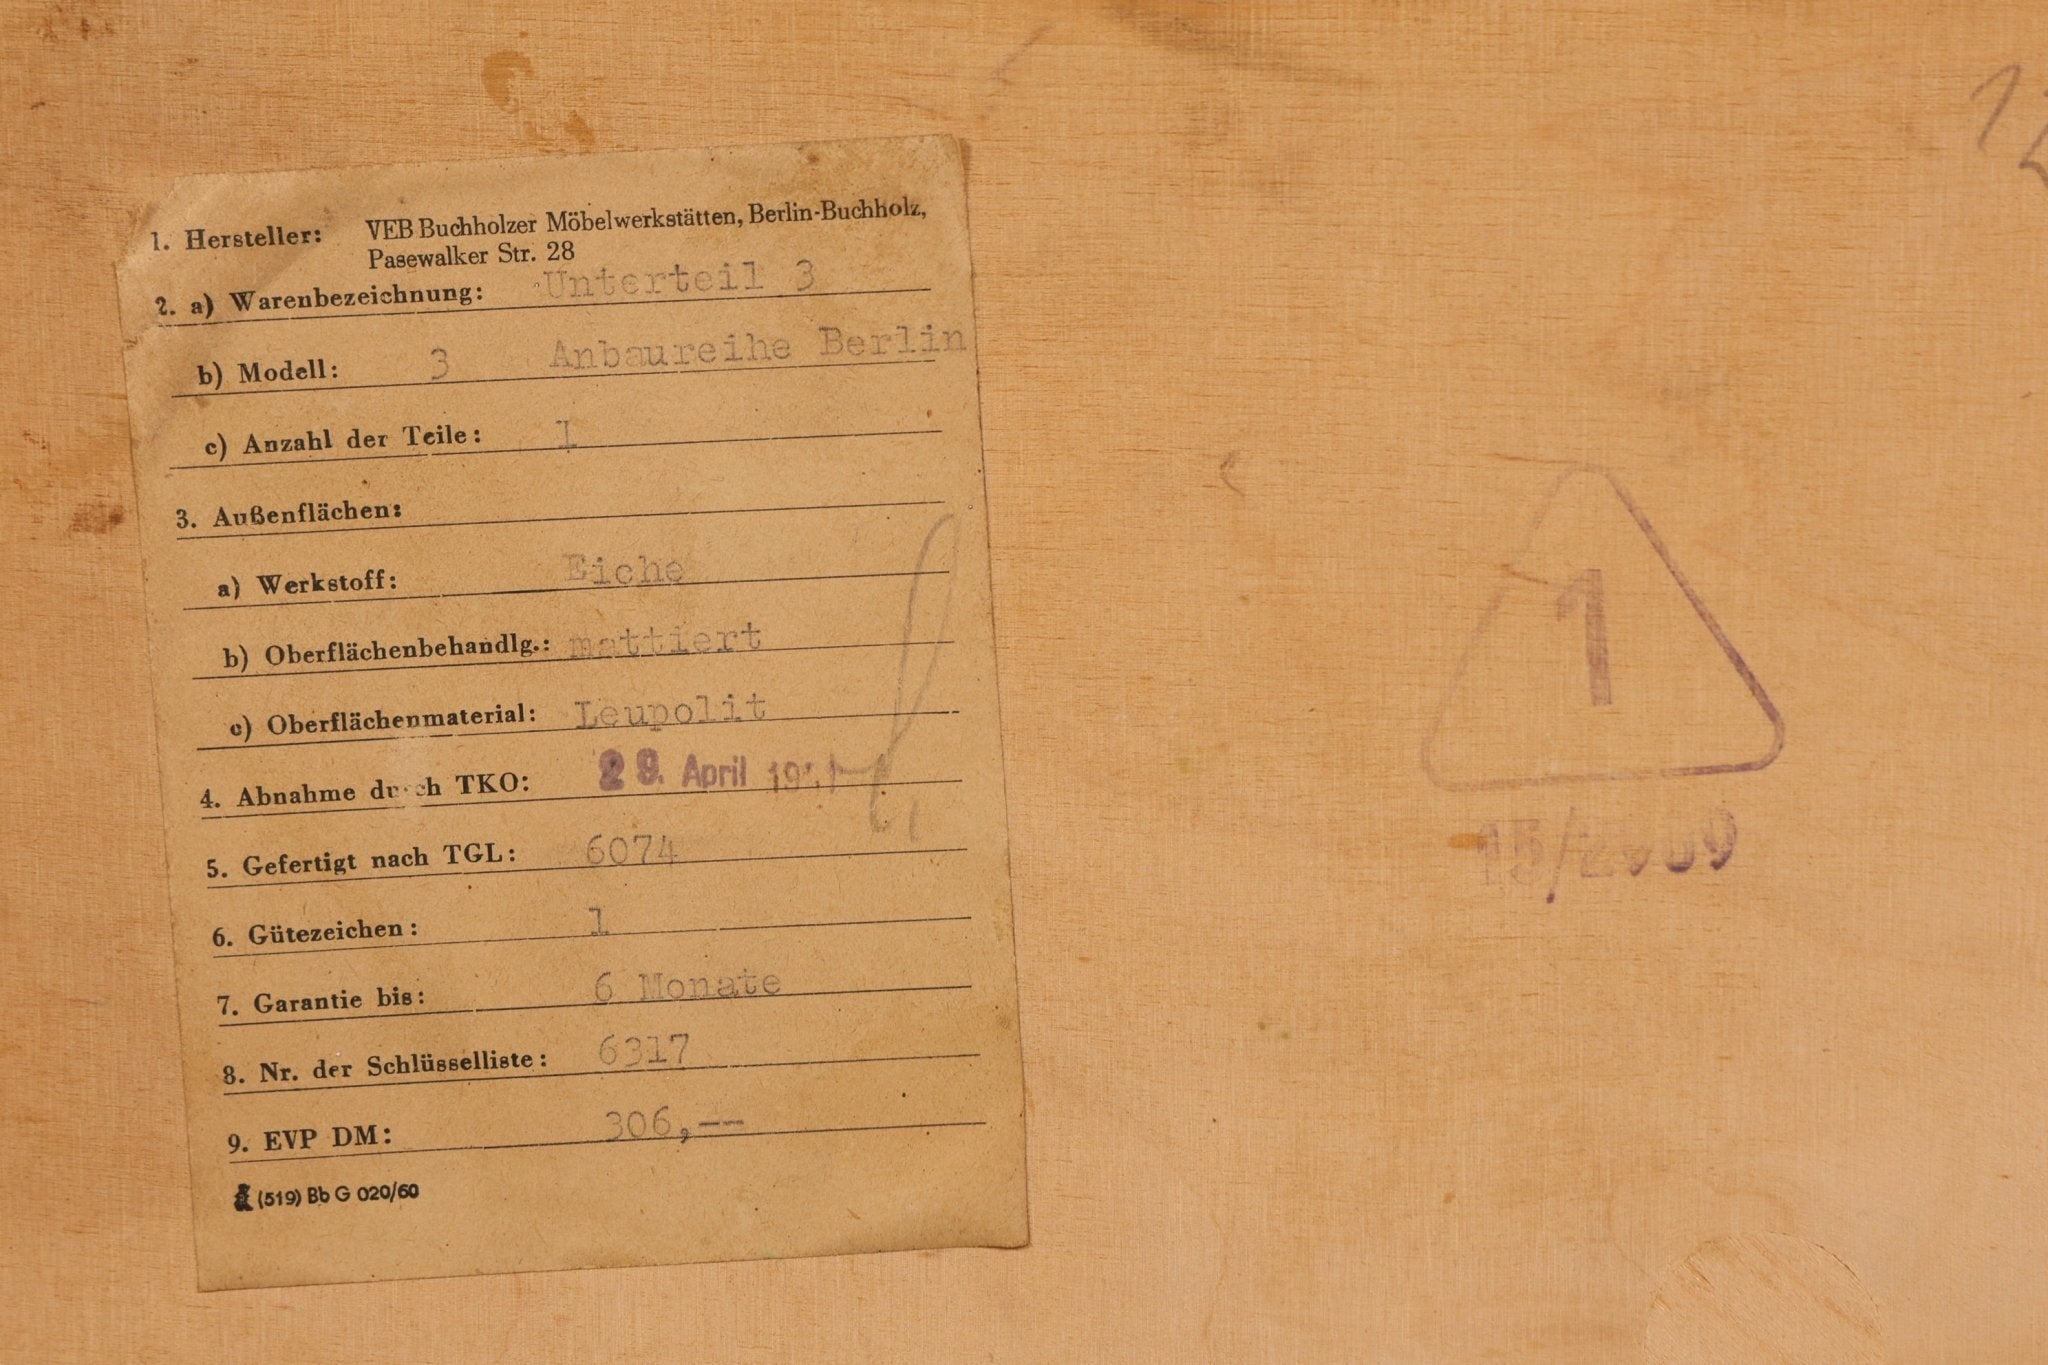 1. Hersteller: VEB Buchholzer Möbelwerkstätten, Berlin-Buchholz,
Pasewalker Str. 28
2. a) Warenbezeichnung: Unterteil 3
b) Modell: 3 Anbaureihe Berlin
c) Anzahl der Teile: 1
3. Außenflächen:
a) Werkstoff: Eiche
b) Oberflächenbehandlg.: mattiert
c) Oberflächenmaterial: Leupolit
4. Abnahme durch TKO: 29. April
5. Gefertigt nach TGL: 6074
6. Gütezeichen: 1
7. Garantie bis: 6 Monate
8. Nr. der Schlüsselliste: 6317
9. EVP DM: 306,--
(519) Bb G 020/60
1